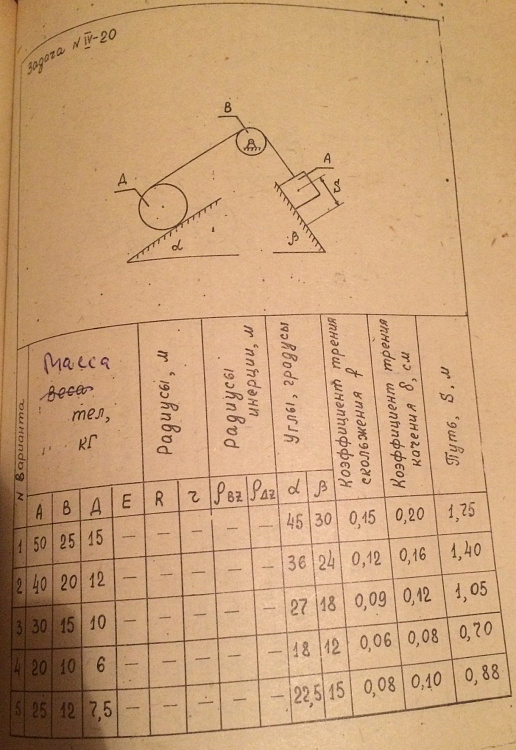 Задача N IV-20
В
Д
А
S
α
β
N Варианта
Масса
веса
тел,
кГ
Радиусы, м
Радиусы инерции, м
Углы, градусы
Коэффициент трения скольжения f
Коэффициент трения качения δ, см
Путь, S, м
А В Д Е R r ρBZ ρДZ α β
1 50 25 15 — — — — — 45 30 0,15 0,20 1,75
2 40 20 12 — — — — — 36 24 0,12 0,16 1,40
3 30 15 10 — — — — — 27 18 0,09 0,12 1,05
4 20 10 6 — — — — — 18 12 0,06 0,08 0,70
5 25 12 7,5 — — — — — 22,5 15 0,08 0,10 0,88